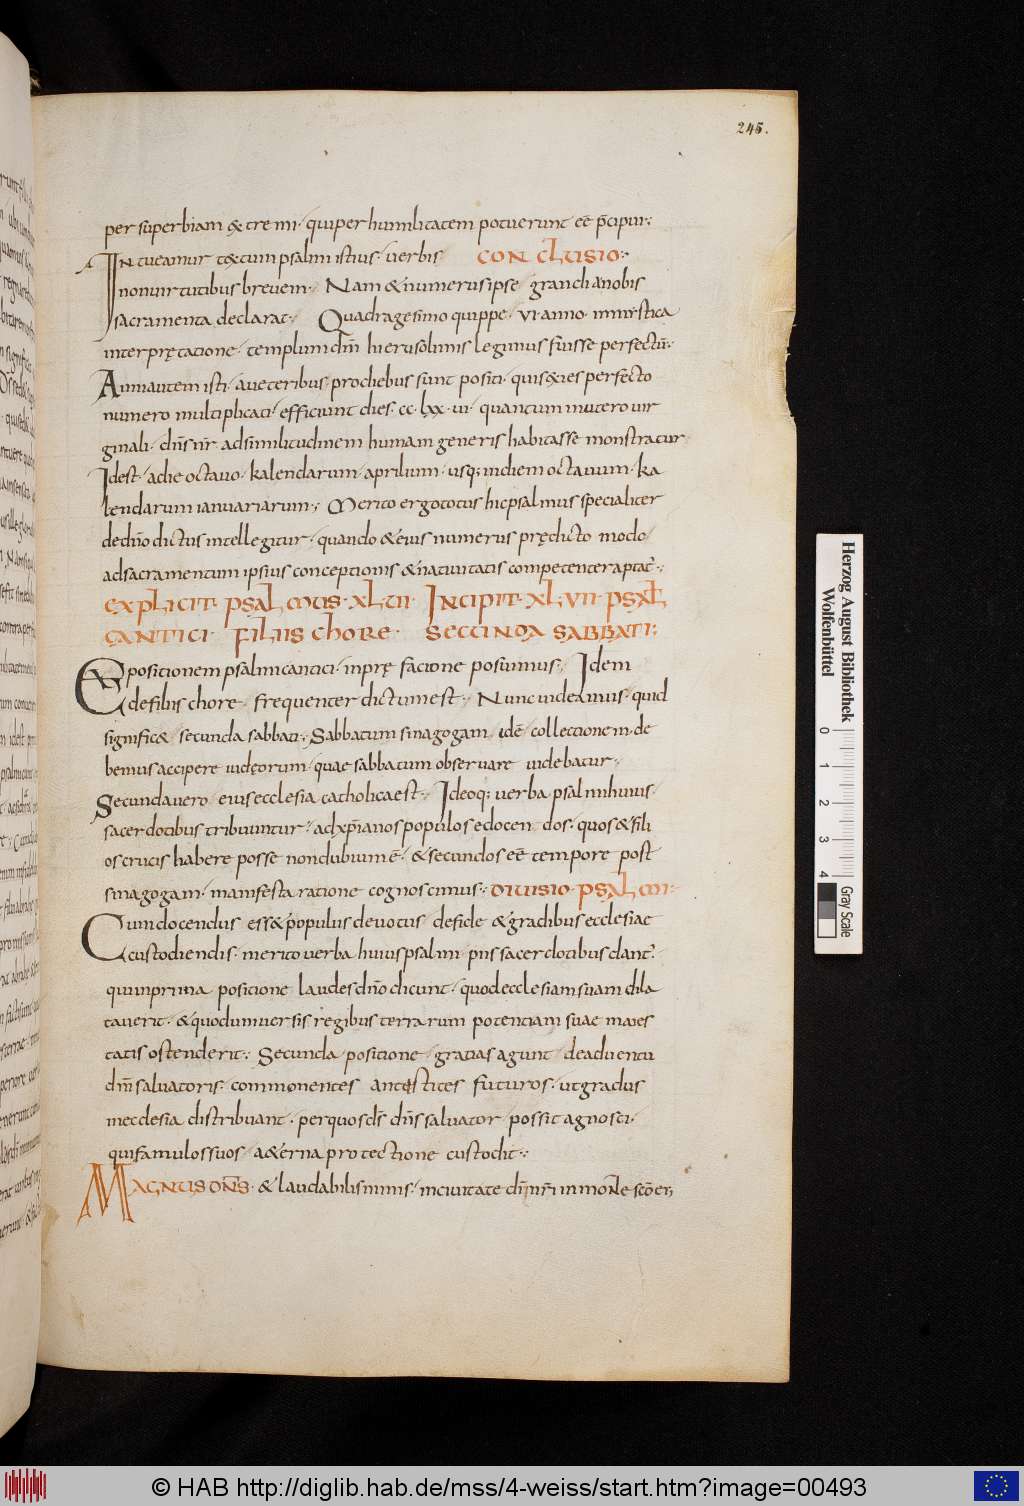 245.
per superbiam & tremi· qui per humilitatem potuerunt eē p̄cipui:
Intueamur textum psalmi istius· uerbis CONCLUSIO:
non uirtutibus breuem:· Nam & numerus ipse grandia nobis
sacramenta declarat:· Quadragesimo quippe· VI· anno· mystica
interpretatione· templum dn̄i hierusolimis legimus fuisse perfectū:·
Anni autem isti· a ueteribus prodiebus sunt positi· qui sexies perfecto
numero multiplicati· efficiunt dies· cc· lxx· vi· quantum in utero uir
ginali· dn̄s nr̄ ad similitudinem humani generis habitasse monstratur
Idest· a die octauo· kalendarum· aprilium· usq; in diem octauum· ka
lendarum ianuariarum:· Merito ergo totus hic psalmus specialiter
de dn̄o dictus intellegitur· quando & eius numerus prędicto modo
ad sacramentum ipsius conceptionis & natiuitatis competenter aptat̄:·
EXPLICIT· PSALMUS· XL·VI· INCIPIT· XL·VII· PSAL
CANTICI· FILIIS CHORE· SECUNDA SABBATI:
Expositionem psalmi cantici· in pręfacione posuimus:· Idem
de filiis chore· frequenter dictum est:· Nunc uideamus· quid
signific& secunda sabbati:· Sabbatum sinagogam idē collectionem· de
bemus accipere iudęorum· quae sabbatum obseruare uidebatur:·
Secunda uero· eius ecclesia catholica est:· Ideoq; uerba psalmi huius·
sacerdotibus tribuuntur· ad xp̄ianos populos edocendos· quos & fili
os crucis habere posse non dubium ē· & secundos eē tempore post
sinagogam· manifesta ratione cognoscimus:· DIUISIO· PSALMI:·
Cum docendus ess& populus deuotus de fide & gradibus ecclesiae
custodiendis· merito uerba huius psalmi· piis sacerdotibus dant̄·
qui in prima positione laudes dn̄o dicunt· quod ecclesiam suam dila
tauerit· & quod uniuersis regibus terrarum potentiam suae maies
tatis ostenderit:· Secunda positione· gratias agunt de aduentu
dn̄i saluatoris· commonentes antestites futuros· ut gradus
in ecclesia distribuant· per quos ds̄ dn̄s saluator possit agnosci·
qui famulos suos· a&erna protectione custodit:·
MAGNUS DN̄S· & laudabilis nimis· in ciuitate dī nr̄i in monte scō eī;
Herzog August Bibliothek
Wolfenbüttel
0 1 2 3 4
Gray Scale
© HAB http://diglib.hab.de/mss/4-weiss/start.htm?image=00493